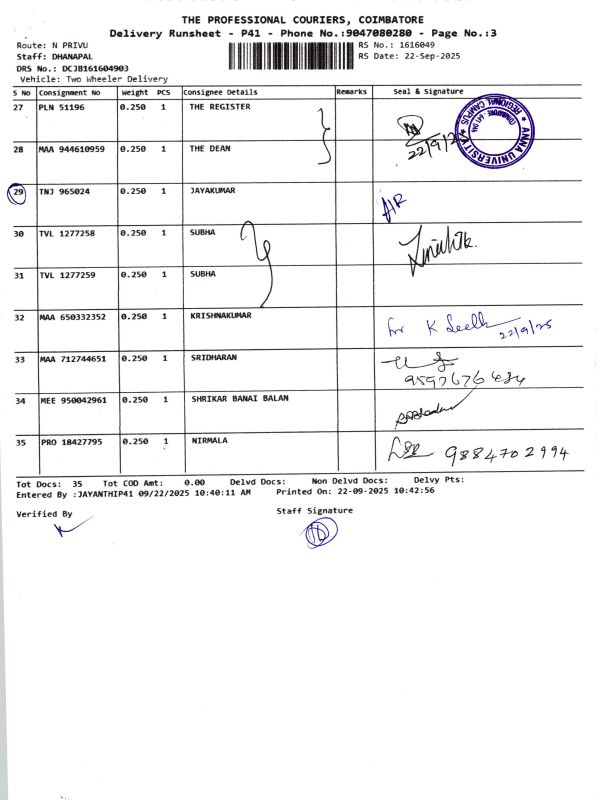 THE PROFESSIONAL COURIERS, COIMBATORE
Delivery Runsheet - P41 - Phone No.:9047080280 - Page No.:3
Route: N PRIVU RS No.: 1616049
Staff: DHANAPAL RS Date: 22-Sep-2025
DRS No.: DCJB161604903
Vehicle: Two Wheeler Delivery
S No Consignment No Weight PCS Consignee Details Remarks Seal & Signature
27 PLN 51196 0.250 1 THE REGISTER
28 MAA 944610959 0.250 1 THE DEAN
22/9/25
ANNA UNIVERSITY REGIONAL CAMPUS
29 TNJ 965024 0.250 1 JAYAKUMAR
30 TVL 1277258 0.250 1 SUBHA
31 TVL 1277259 0.250 1 SUBHA
32 MAA 650332352 0.250 1 KRISHNAKUMAR
for K 22/9/25
33 MAA 712744651 0.250 1 SRIDHARAN
34 MEE 950042961 0.250 1 SHRIKAR BANAI BALAN
35 PRO 18427795 0.250 1 NIRMALA 9884702994
Tot Docs: 35 Tot COD Amt: 0.00 Delvd Docs: Non Delvd Docs: Delvy Pts:
Entered By :JAYANTHIP41 09/22/2025 10:40:11 AM Printed On: 22-09-2025 10:42:56
Verified By Staff Signature